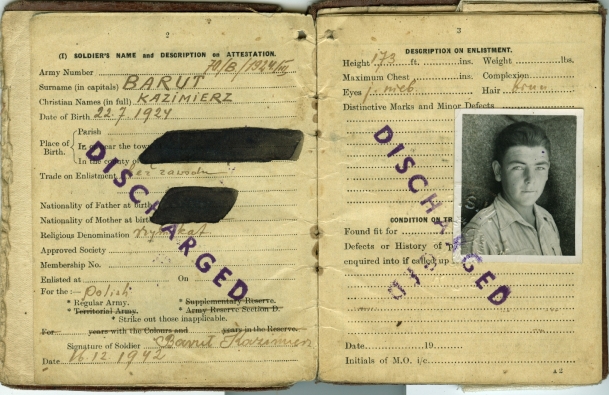 2
(I) SOLDIER'S NAME and DESCRIPTION on ATTESTATION.
Army Number 70/B/1924/III
Surname (in capitals) BARUT
Christian Names (in full) KAZIMIERZ
Date of Birth 22.7.1924
Place of Birth.
Parish
In the county of
Trade on Enlistment bez zawodu
Nationality of Father at birth
Nationality of Mother at birth
Religious Denomination
Approved Society
Membership No.
Enlisted at On
For the:— Polish
* Regular Army. * Supplementary Reserve.
* Territorial Army. * Army Reserve Section D.
* Strike out those inapplicable.
For years with the Colours and years in the Reserve.
Signature of Soldier Barut Kazimierz
Date 16.12.1942
DISCHARGED
3
DESCRIPTION ON ENLISTMENT.
Height 173 ft. ins. Weight lbs.
Maximum Chest ins. Complexion
Eyes j. nieb. Hair brun
Distinctive Marks and Minor Defects
CONDITION ON TR
Found fit for
Defects or History of
enquired into if called up
Date 19
Initials of M.O. i/c
A2
DISCHARGED